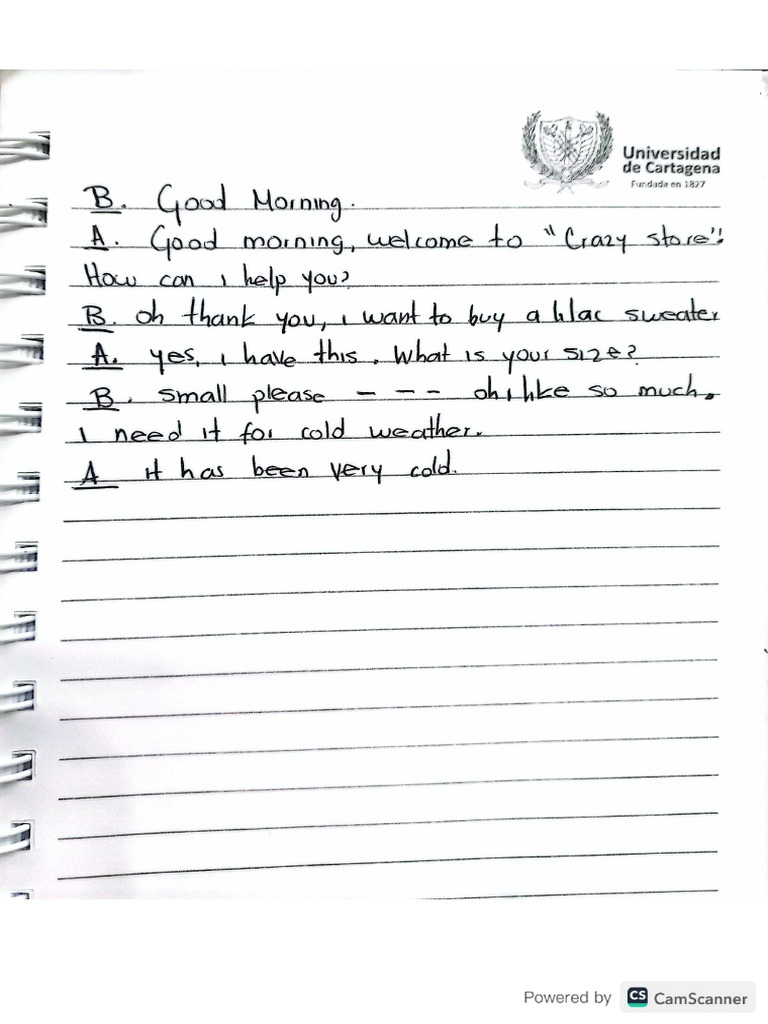 Universidad
de Cartagena
Fundada en 1827
B. Good Morning.
A. Good morning, welcome to "Crazy store"!
How can i help you?
B. oh thank you, i want to buy a lilac sweater
A. yes, i have this. What is your size?
B. small please - - - oh i like so much.
i need it for cold weather.
A it has been very cold.
Powered by CS CamScanner